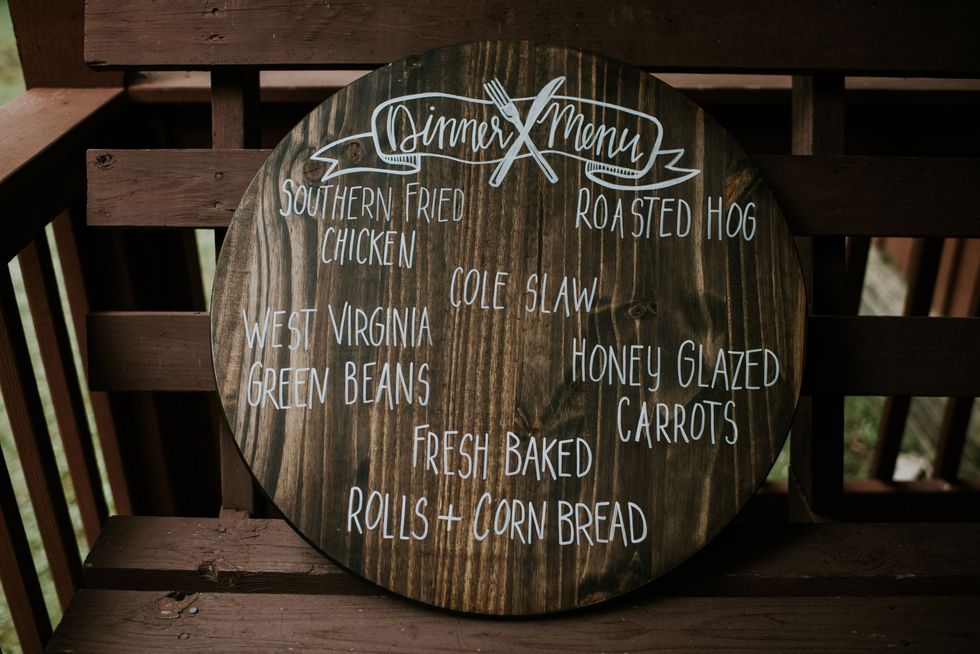 Dinner Menu
Southern Fried
Chicken
Roasted Hog
Cole Slaw
West Virginia
Green Beans
Honey Glazed
Carrots
Fresh Baked
Rolls + Corn Bread